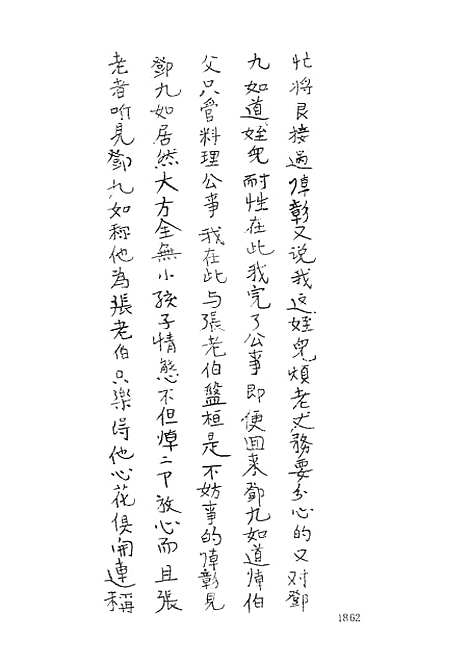 忙将艮接過倬彰又说我这姪兒煩老丈務要分心的又对鄧
九如道姪兒耐性在此我完了公事即便回来鄧九如道倬伯
父只管料理公事我在此与張老伯盤桓是不妨事的倬彰見
鄧九如居然大方全無小孩子情態不但焯二卩放心而且張
老者听見鄧九如称他為張老伯只樂得他心花俱開連稱
1862